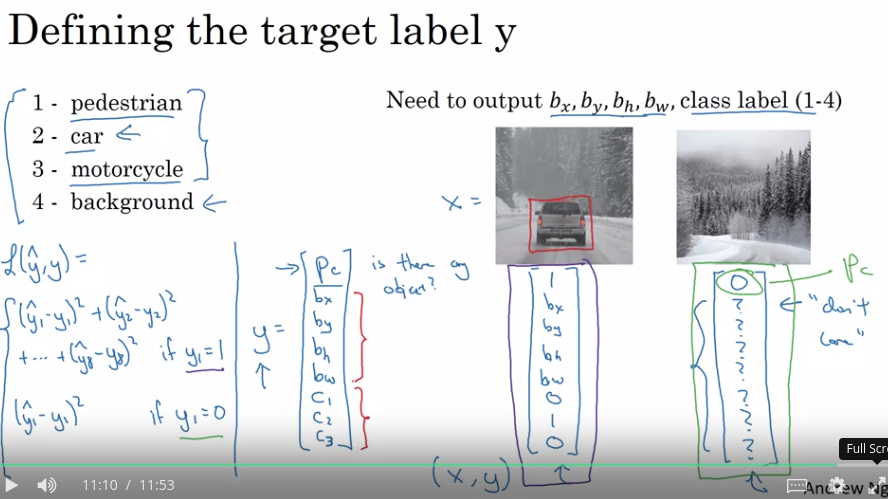 Defining the target label y
1 - pedestrian
2 - car
3 - motorcycle
4 - background
Need to output bx, by, bh, bw, class label (1-4)
x =
L(ŷ,y) =
(ŷ1-y1)² + (ŷ2-y2)²
+ ... + (ŷ8-y8)² if y1=1
(ŷ1-y1)² if y1=0
y =
Pc
bx
by
bh
bw
C1
C2
C3
is there any
object?
1
bx
by
bh
bw
0
1
0
(x, y)
0
?
?
?
?
?
?
?
Pc
"don't
care"
11:10 / 11:53
Full Scre
Andrew Ng